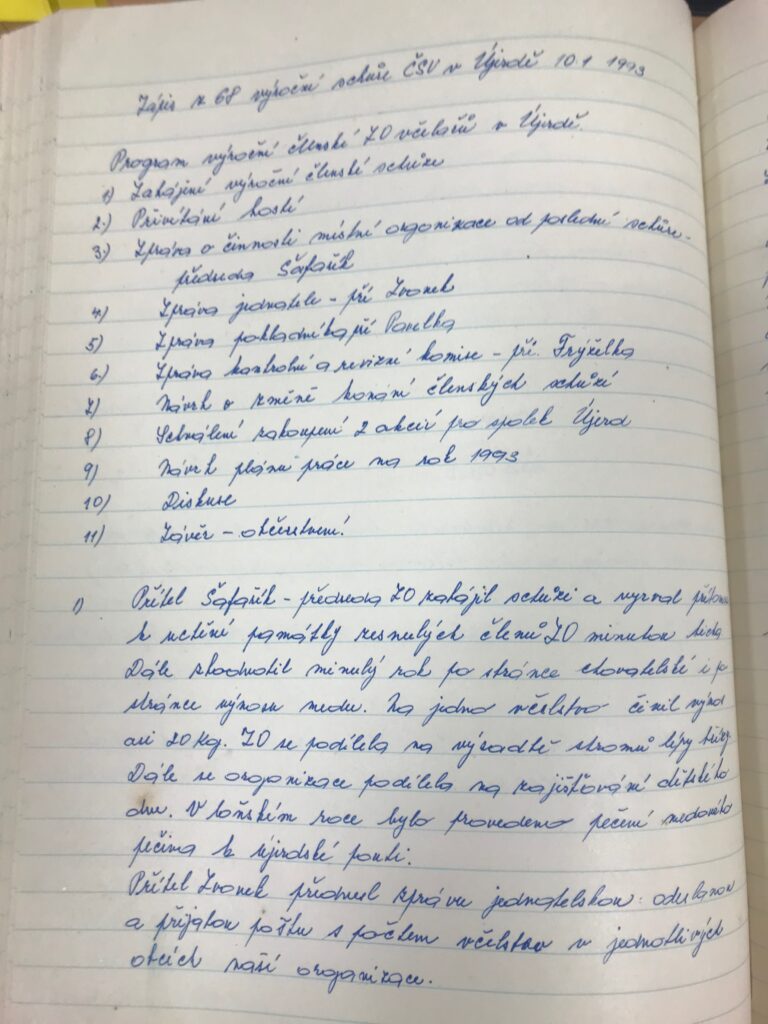 Zápis z 68 výroční schůze ČSV v Újezdě 10.1 1993
Program výroční členské ZO včelařů v Újezdě.
1) Zahájení výroční členské schůze
2.) Přivítání hostí
3.) Zpráva o činnosti místní organizace od poslední schůze-
předseda Šafařík
4.) Zpráva jednatele - př. Zvonek
5) Zpráva pokladníka př. Pavelka
6.) Zpráva kontrolní a revizní komise - př. Frýželka
7.) Návrh o změně konání členských schůzí
8) Schválení zakoupení 2 akcií pro spolek Újezd
9) Návrh plánu práce na rok 1993
10) Diskuse
11) Závěr - občerstvení!
1) Přítel Šafařík - předseda ZO zahájil schůzi a vyzval
k uctění památky zesnulých členů ZO minutou ticha
Dále zhodnotil minulý rok po stránce chovatelské i po
stránce výnosu medu. Na jedno včelstvo činil výnos
asi 20 kg. ZO se podílela na výsadbě stromů lípy
Dále se organizace podílela na zajišťování dětského
dne. V loňském roce bylo provedeno pečení medového
pečiva k újezdské pouti.
Přítel Zvonek přednesl zprávu jednatelskou: odeslanou
a přijatou poštu s počtem včelstev v jednotlivých
obcích naší organizace.